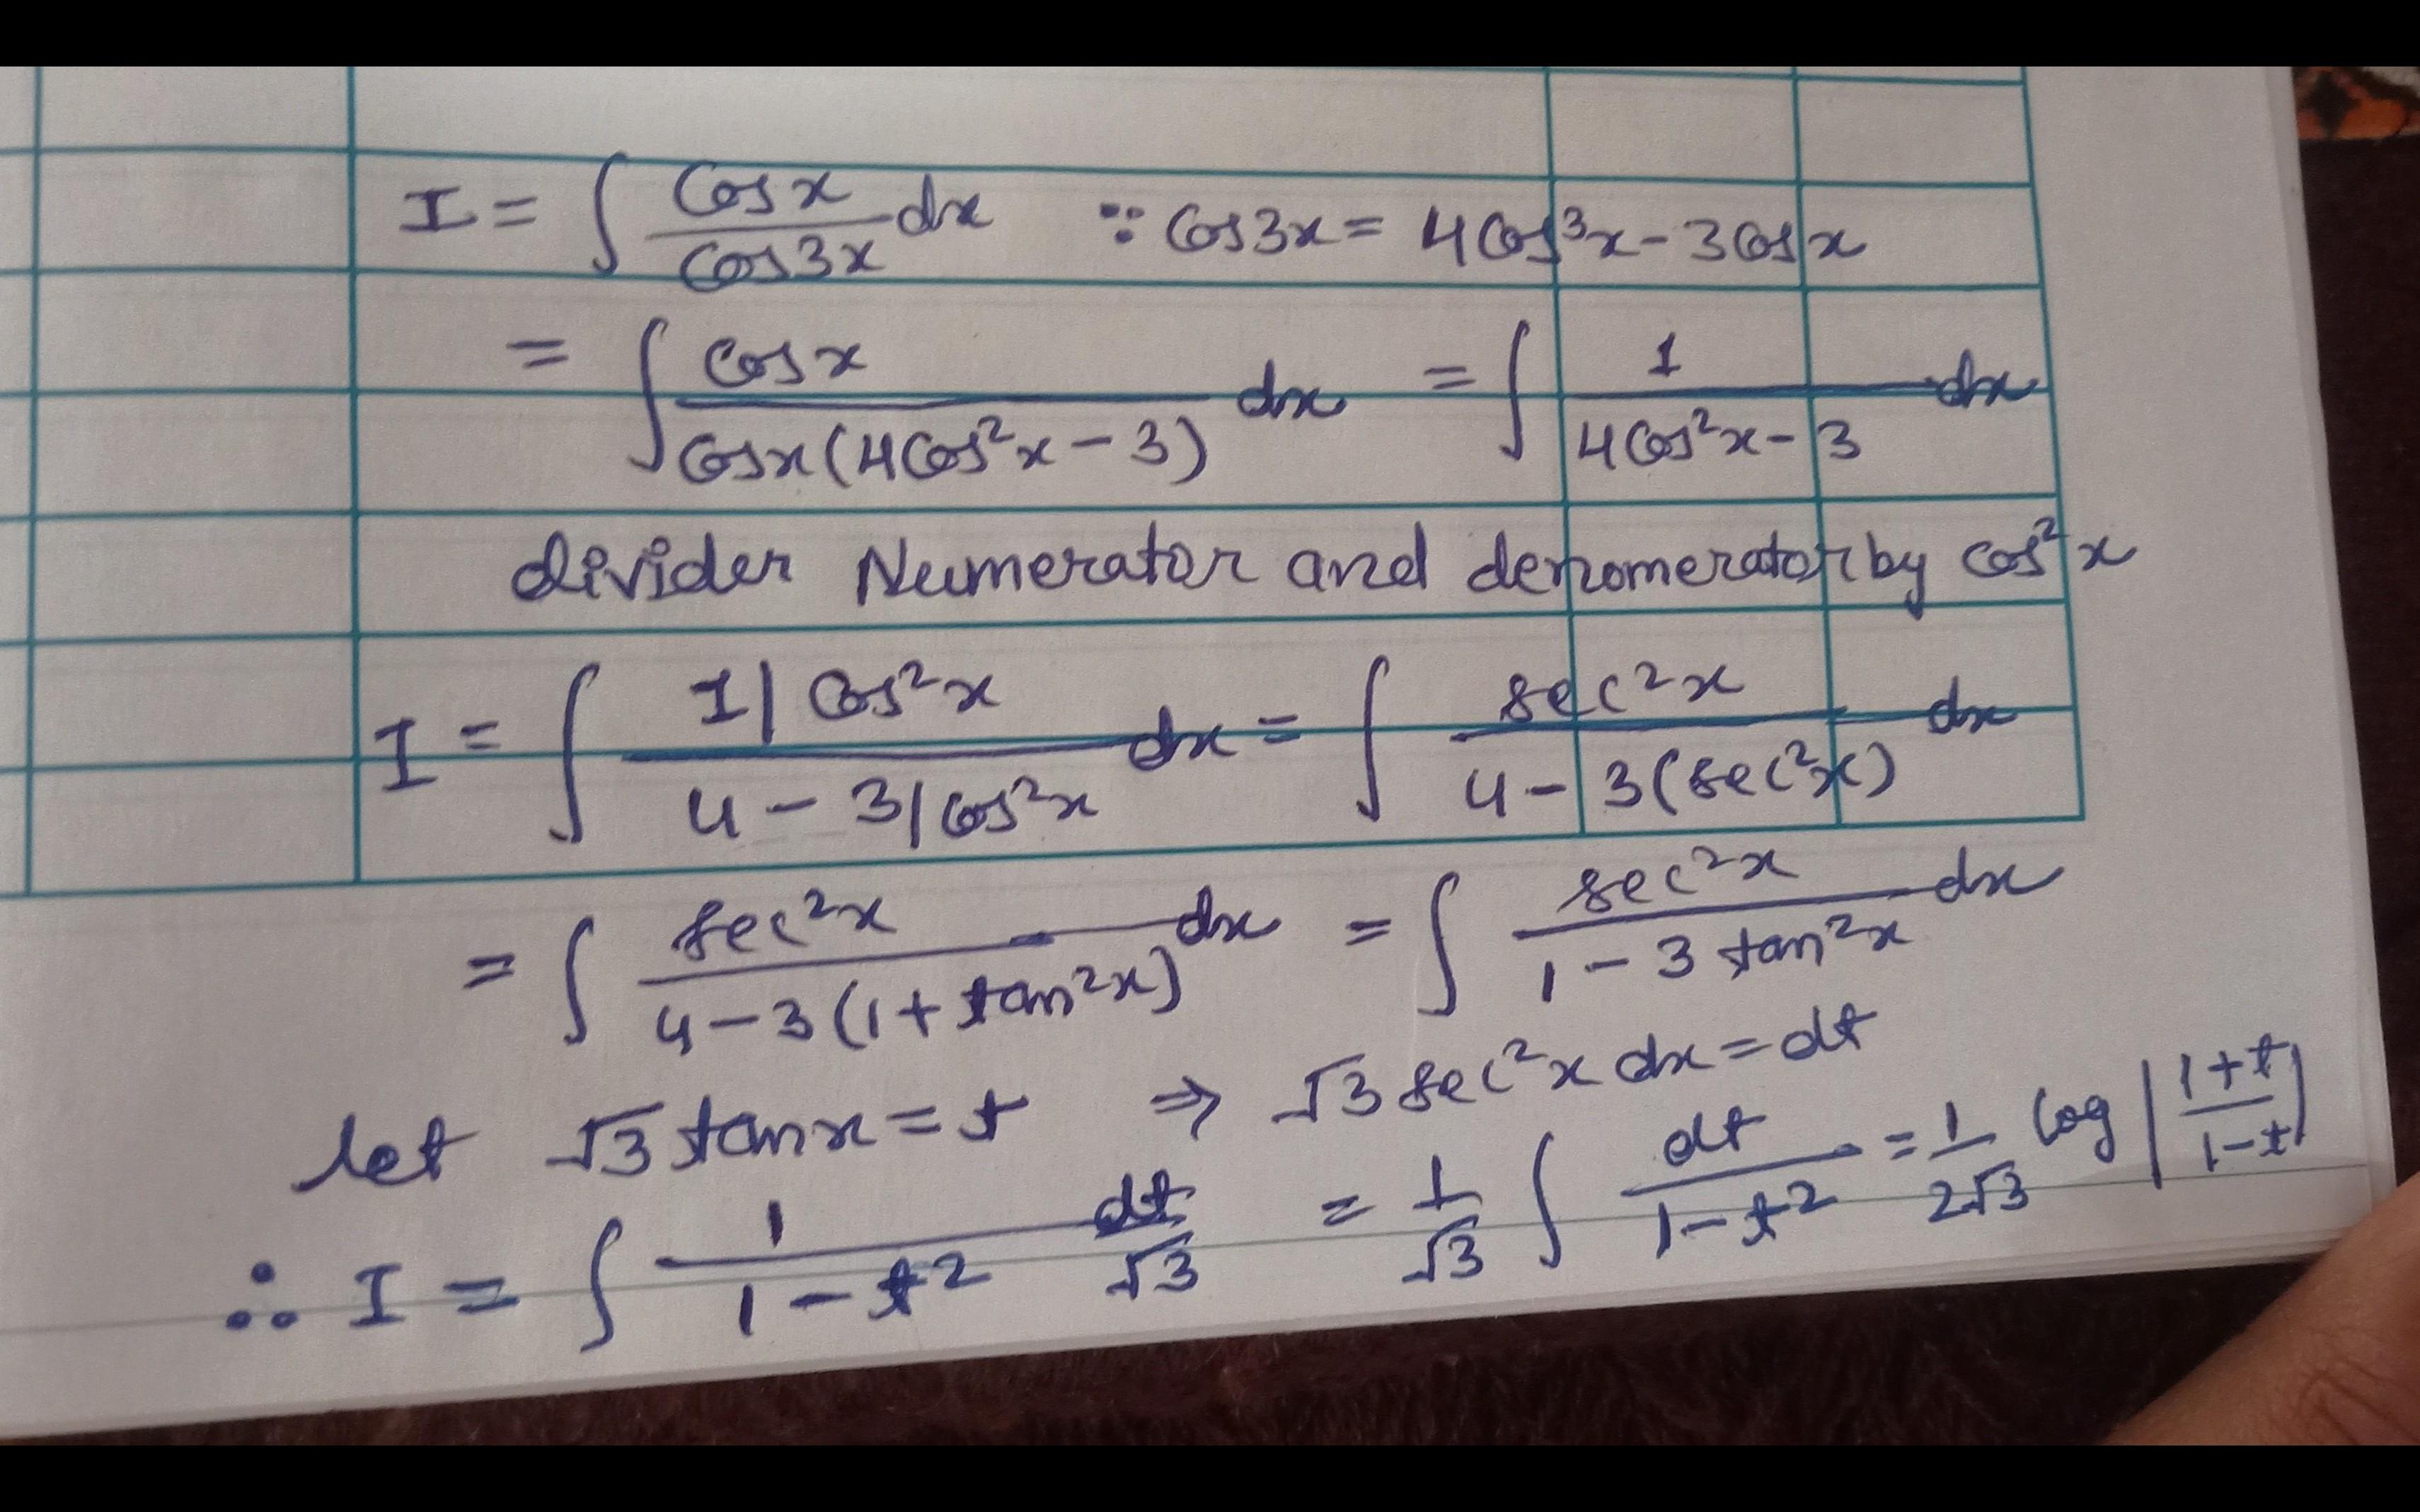 I = ∫ Cos x / Cos 3x dx ∵ Cos3x = 4Cos³x - 3Cosx
= ∫ Cos x / Cosx(4Cos²x - 3) dx = ∫ 1 / 4Cos²x - 3 dx
divider Numerator and denomerator by cos²x
I = ∫ 1/Cos²x / 4 - 3/cos²x dx = ∫ sec²x / 4 - 3(sec²x) dx
= ∫ sec²x / 4 - 3(1 + tan²x) dx = ∫ sec²x / 1 - 3 tan²x dx
let √3 tanx = t ⇒ √3 sec²x dx = dt
∴ I = ∫ 1 / 1 - t² dt / √3 = 1 / √3 ∫ dt / 1 - t² = 1 / 2√3 log |1 + t / 1 - t|